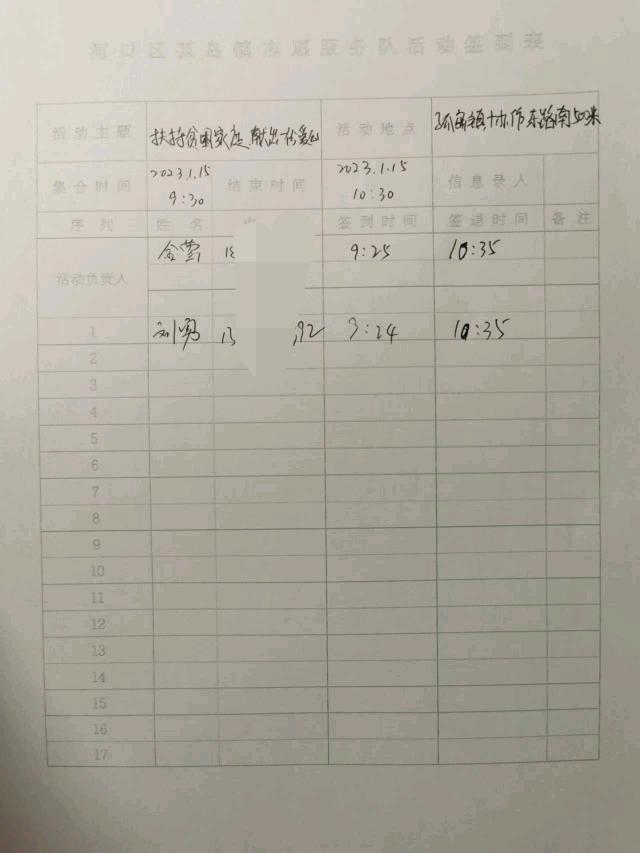 河口区孤岛镇志愿服务队活动签到表
活动主题 扶持贫困家庭,献出一份爱心 活动地点 孤岛镇 东路南50米
集合时间 2023.1.15 9:30 结束时间 2023.1.15 10:30 信息录入
序列 姓名 签到时间 签退时间 备注
活动负责人 金 18 9:25 10:35
1 刘勇 13 92 9:24 10:35
2
3
4
5
6
7
8
9
10
11
12
13
14
15
16
17